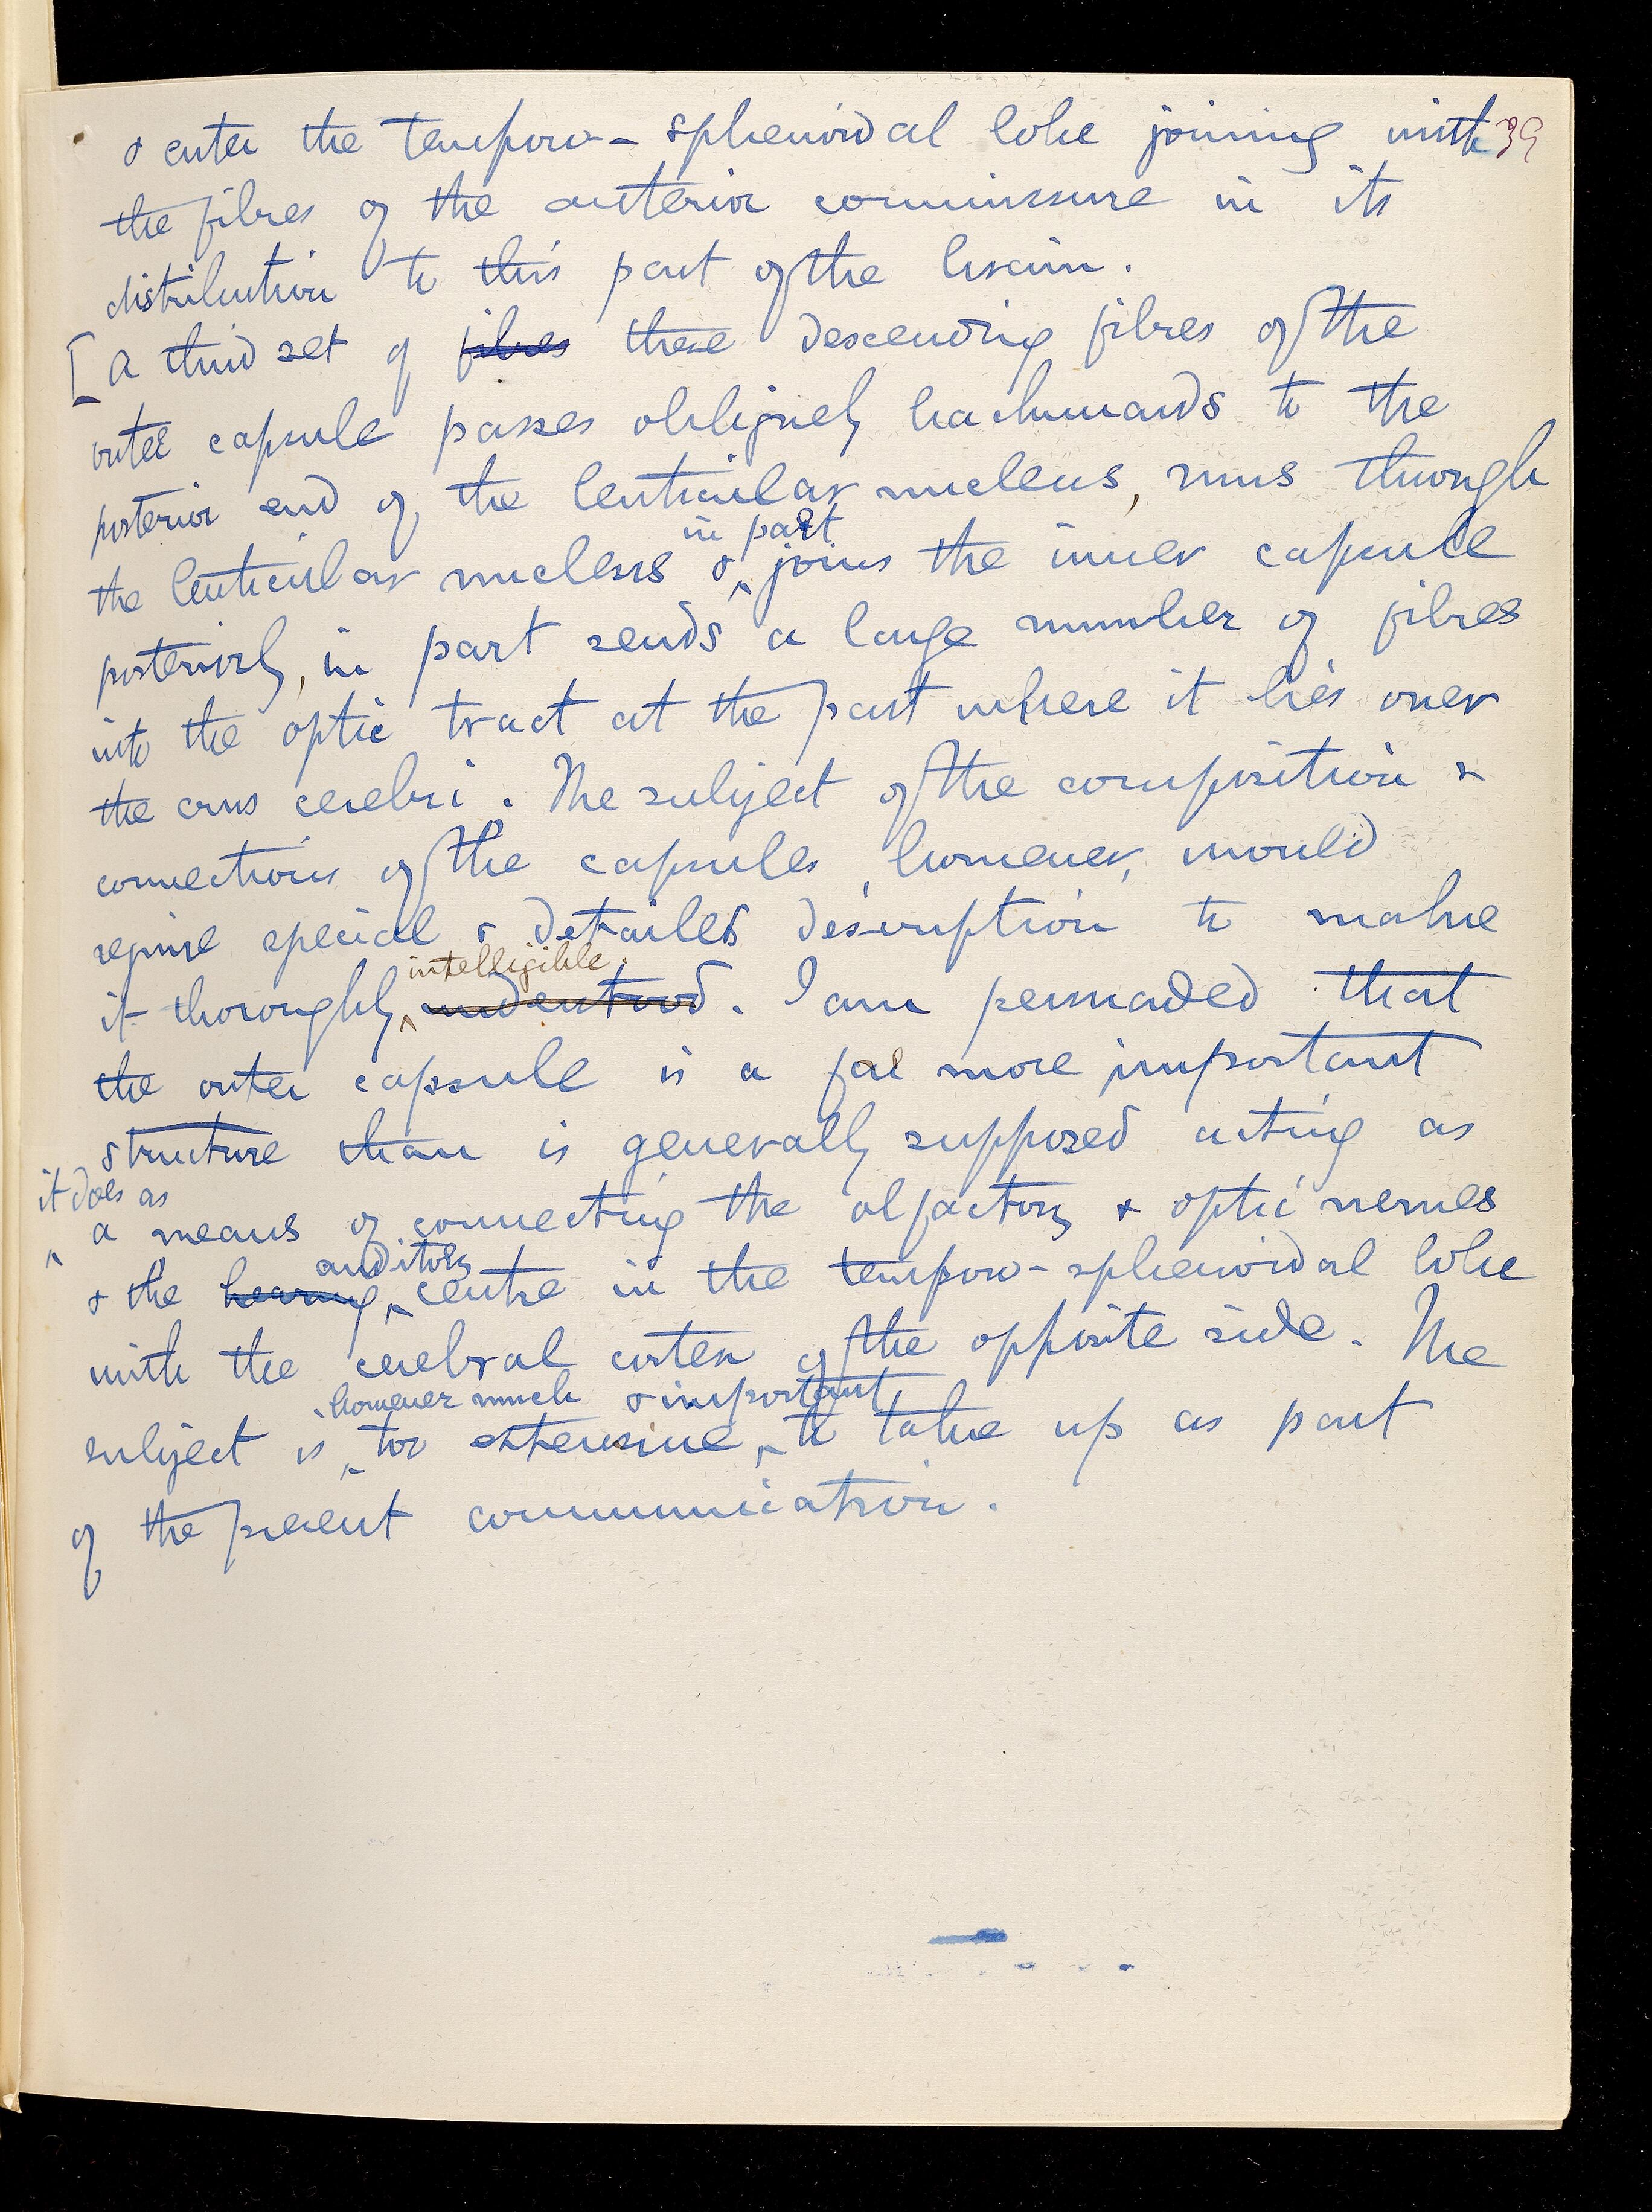 & enter the temporo-sphenoidal lobe joining with 39
the fibres of the anterior commissure in its
distribution to this part of the brain.
[A third set of fibres these descending fibres of the
outer capsule passes obliquely backwards to the
posterior end of the lenticular nucleus, runs through
in part
the lenticular nucleus & ^ joins the inner capsule
posteriorly, in part sends a large number of fibres
into the optic tract at the part where it lies over
the crus cerebri. The subject of the composition &
connections of the capsules, however, would
require special & detailed description to make
intelligible.
it thoroughly ^ understood. I am persuaded that
the outer capsule is a far more important
structure than is generally supposed acting as
it does as
^ a means of connecting the olfactory & optic nerves
auditory
& the hearing ^ centre in the temporo-sphenoidal lobe
with the cerebral cortex of the opposite side. The
however much & important
subject is ^ too extensive ^ to take up as part
of the present communication.